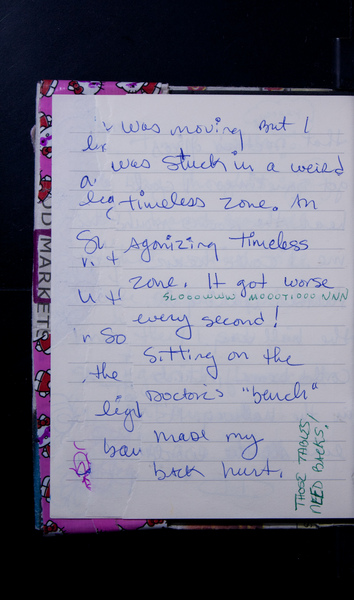 was moving But I
was stuck in a weird
timeless zone. An
Agonizing timeless
zone. It got worse
SLOOOWWW MOOOTIOOO NNN
every second!
Sitting on the
Doctor's "bench"
made my
back hurt.
THOSE TABLES
NEED BACKS!
So
the
MARKET